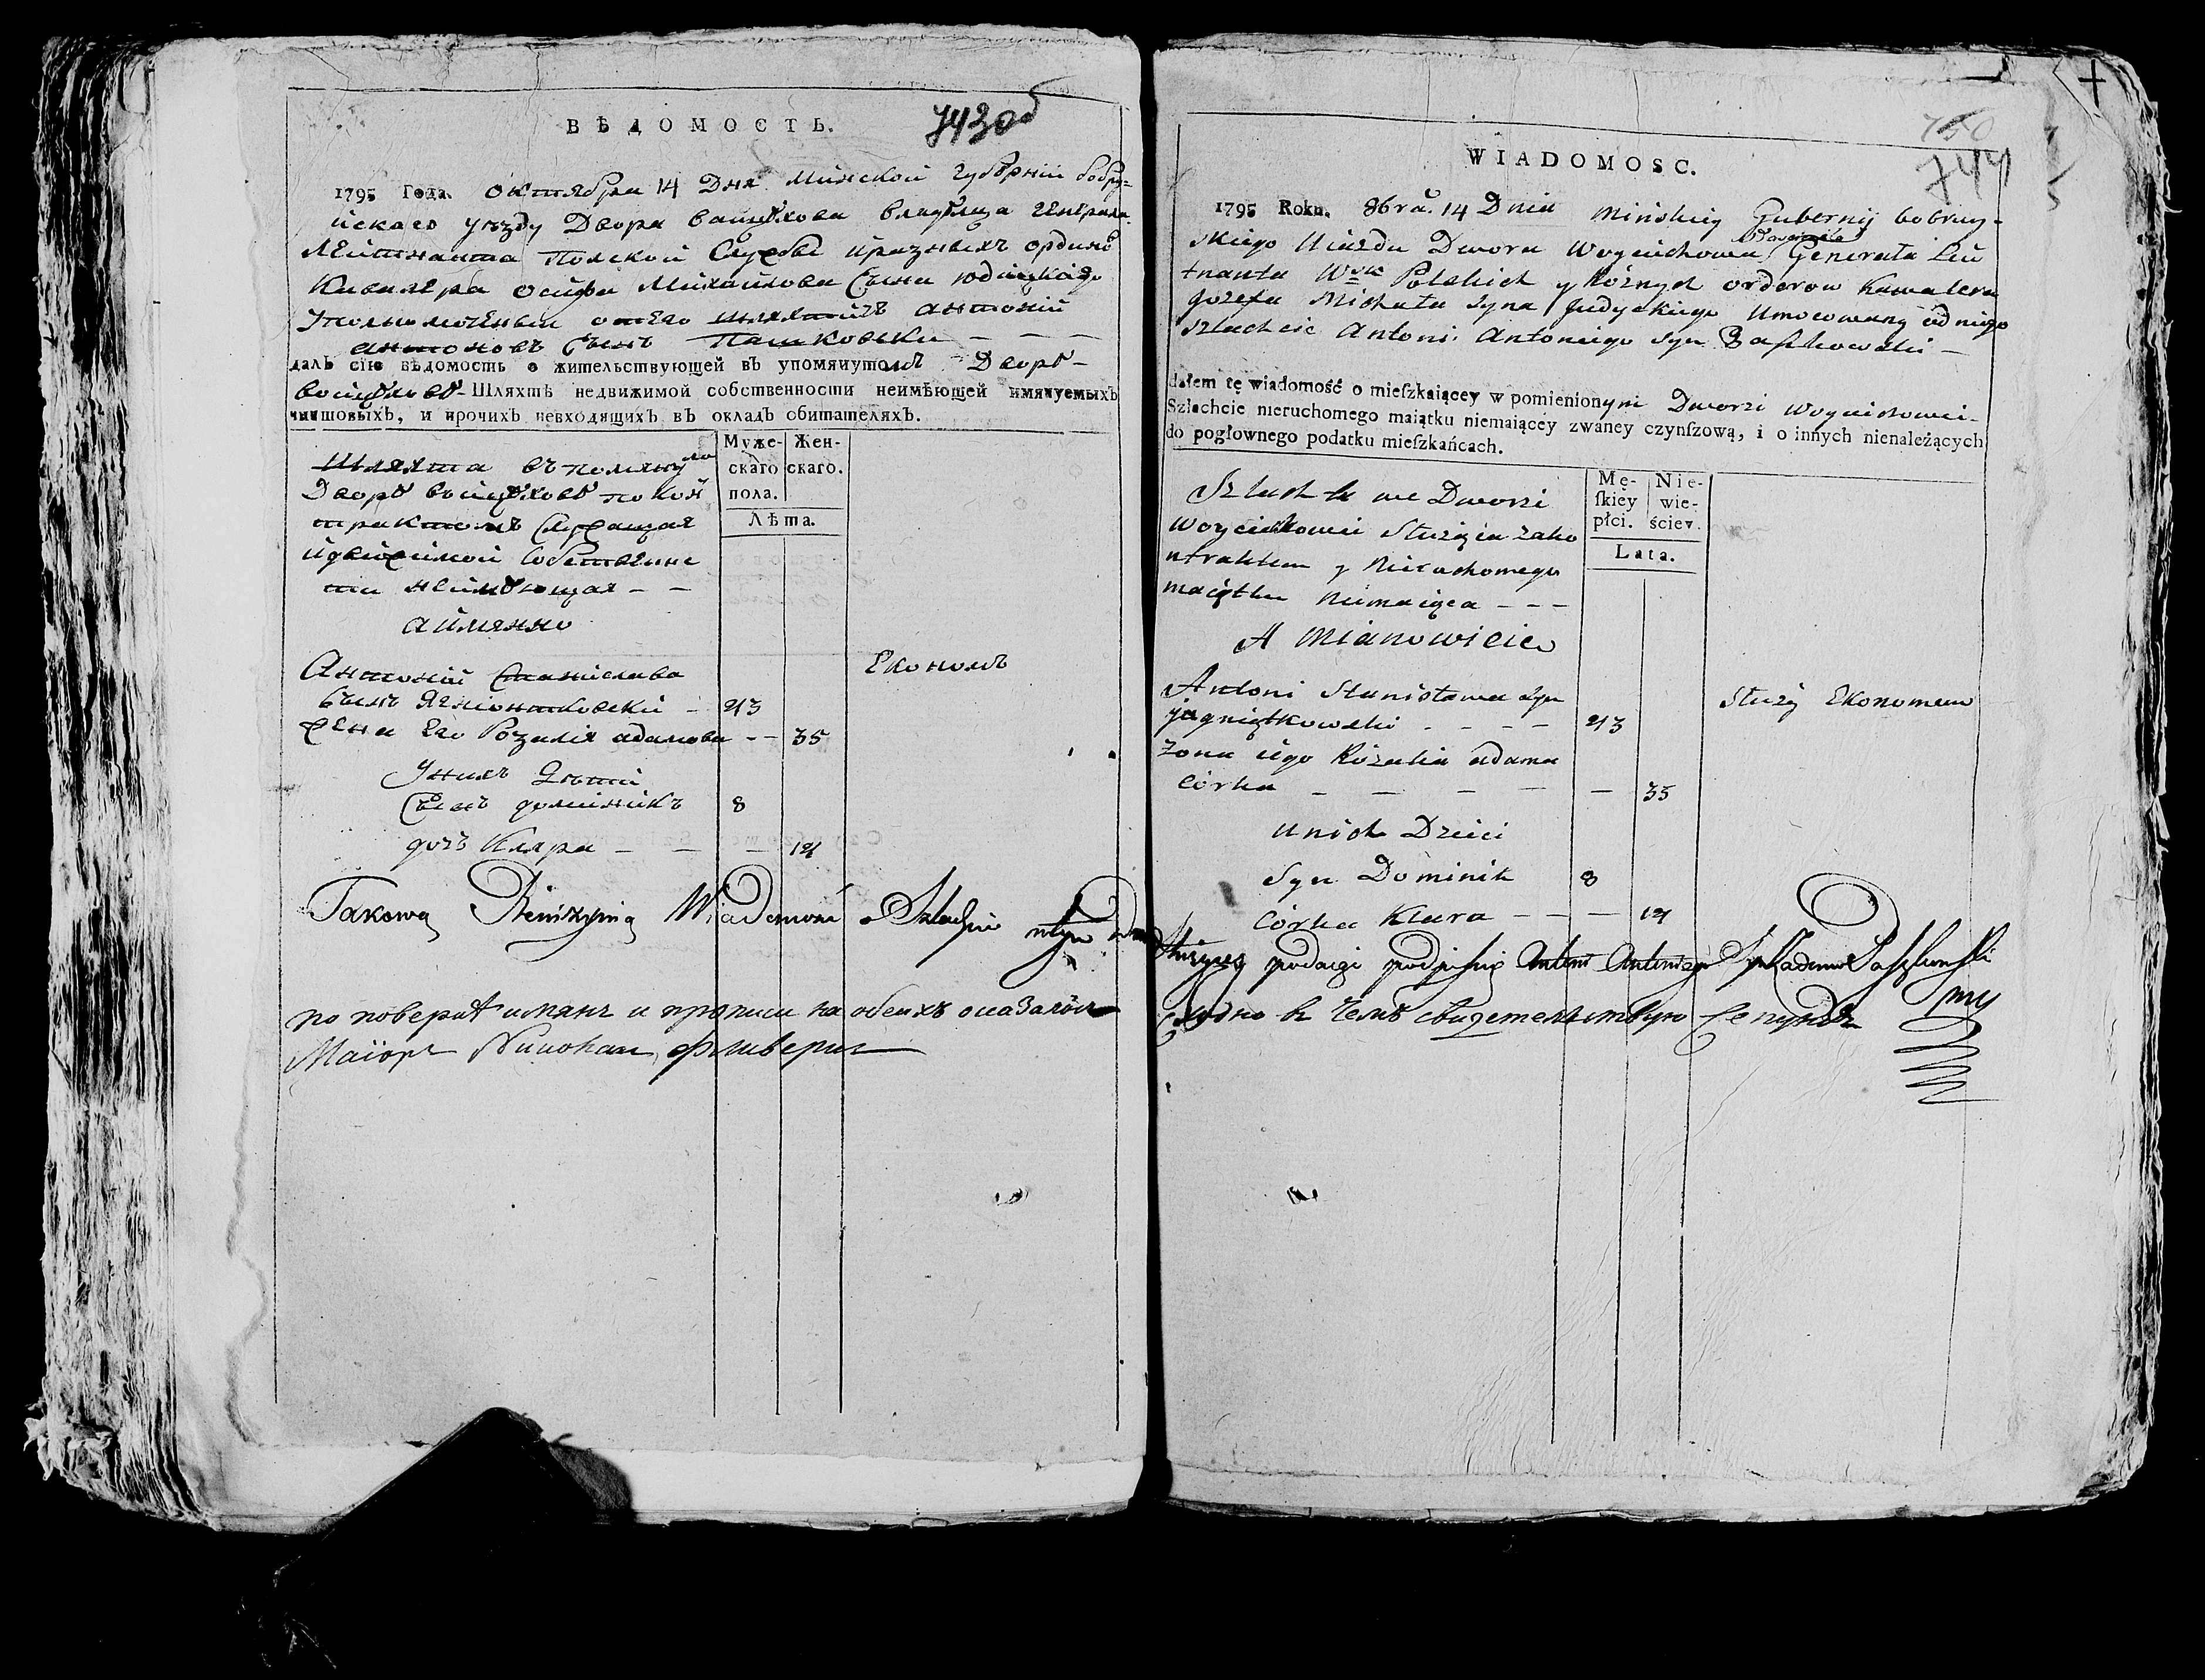 ВѢДОМОСТЬ.
743об
1795 Года. октября 14 Дня Минской губернии бобру=
йскаго уезду Двора воицѣхова владѣлца генерала
лейтнанта полской службы и разныхъ ординовъ
Кавалера осифа Михайлова сына юдицкаго
уполномоченный отъ его шляхтичъ антоний
антоновъ сынъ Пашковски — —
далъ сію вѣдомость о жительствующей въ упомянутомъ Дворѣ-
воицѣховѣ- Шляхтѣ недвижимой собственности неимѣющей имянуемыхъ
чиншовыхъ, и прочихъ невходящихъ въ окладъ обитателяхъ.
Муже- Жен-
скаго скаго.
пола.
Лѣта.
Шляхта въ помяну
Дворѣ воицѣховѣ по кон
трактомъ служащая
и движимой собственно
сти неимѣющая - -
а имянно
Антоний Станислава
сынъ Ягнионтковски - 43 Економъ
жена его Розалия адамова - - 35
У них дети
Сынъ доминикъ 8
дочь Кляра - - - 14
Takową Rewizyiną Wiadomość o Szlachcie
по поверке имянъ и прописи на обеихъ оказалось
Маиоръ
WIADOMOSC.
750
744
1795 Roku. 8bra. 14 Dnia Mińskiey Gubernij bobruy-
skiego Uiazdu Dworu Woyciechowa Generała Leu
tnanta Woysk Polskich y Róznych orderow Kawalera
Jozefa Michała syna Judyckiego Umocowany od niego
szlachcic Antoni Antoniego syn Paszkowski —
dałem tę wiadomość o mieſzkaiącey w pomienionym Dworzi Woyciechowei-
Szlachcie nieruchomego maiątku niemaiącey zwaney czynſzową, i o innych nienależących
do pogłownego podatku mieſzkańcach.
Mę- Nie-
ſkiey wie-
płci. ściey.
Lata.
Szlachta we Dworzi
Woyciechowei Służąca zako
ntraktem y Nieruchomego
maiątku Niemaiąca - - -
A Mianowicie
Antoni Stanisława syn
jagniątkowski - - - - 43 Służy Ekonomem
Żona iego Rozalia adama
córka — — — — — 35
U nich Dzieci
Syn Dominik 8
Córka Klara - - - 14
Służącey podaięi podpisuię Antoni Antoniego Syn Paszkowski
Сходно в чемъ свидетельствую Секундъ